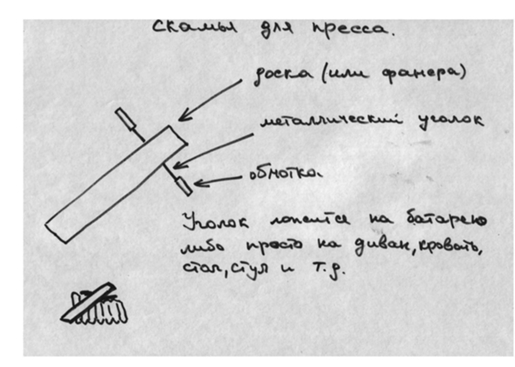 Скамья для пресса.
доска (или фанера)
металлический уголок
обмотка
Уголок ложится на батарею
либо просто на диван, кровать,
стол, стул и т.д.